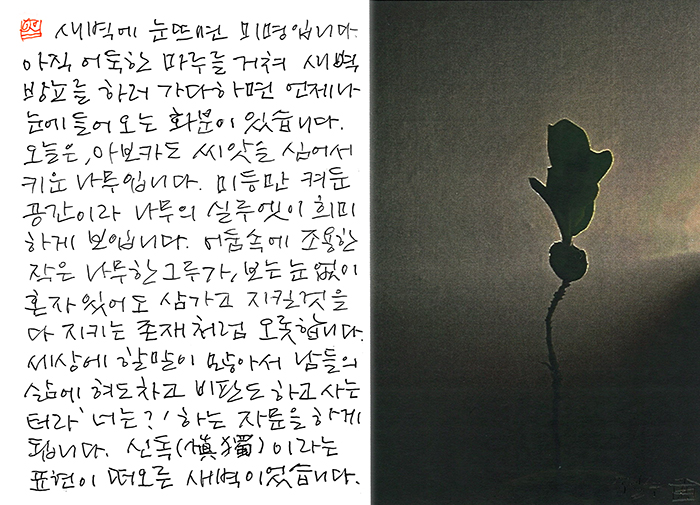 새벽에 눈뜨면 미명입니다.
아직 어둑한 마루를 거쳐 새벽
방뇨를 하러 가다하면 언제나
눈에 들어오는 화분이 있습니다.
오늘은, 아보카도 씨앗을 심어서
키운 나무입니다. 미등만 켜둔
공간이라 나무의 실루엣이 희미
하게 보입니다. 어둠속에 조용한
작은 나무한그루가, 보는 눈 없이
혼자 있어도 삼가고 지킬것을
다 지키는 존재처럼 오롯합니다.
세상에 할말이 많아서 남들의
삶에 혀도차고 비판도 하고 사는
터라 '너는?' 하는 자문을 하게
됩니다. 신독(愼獨)이라는
표현이 떠오른 새벽이었습니다.